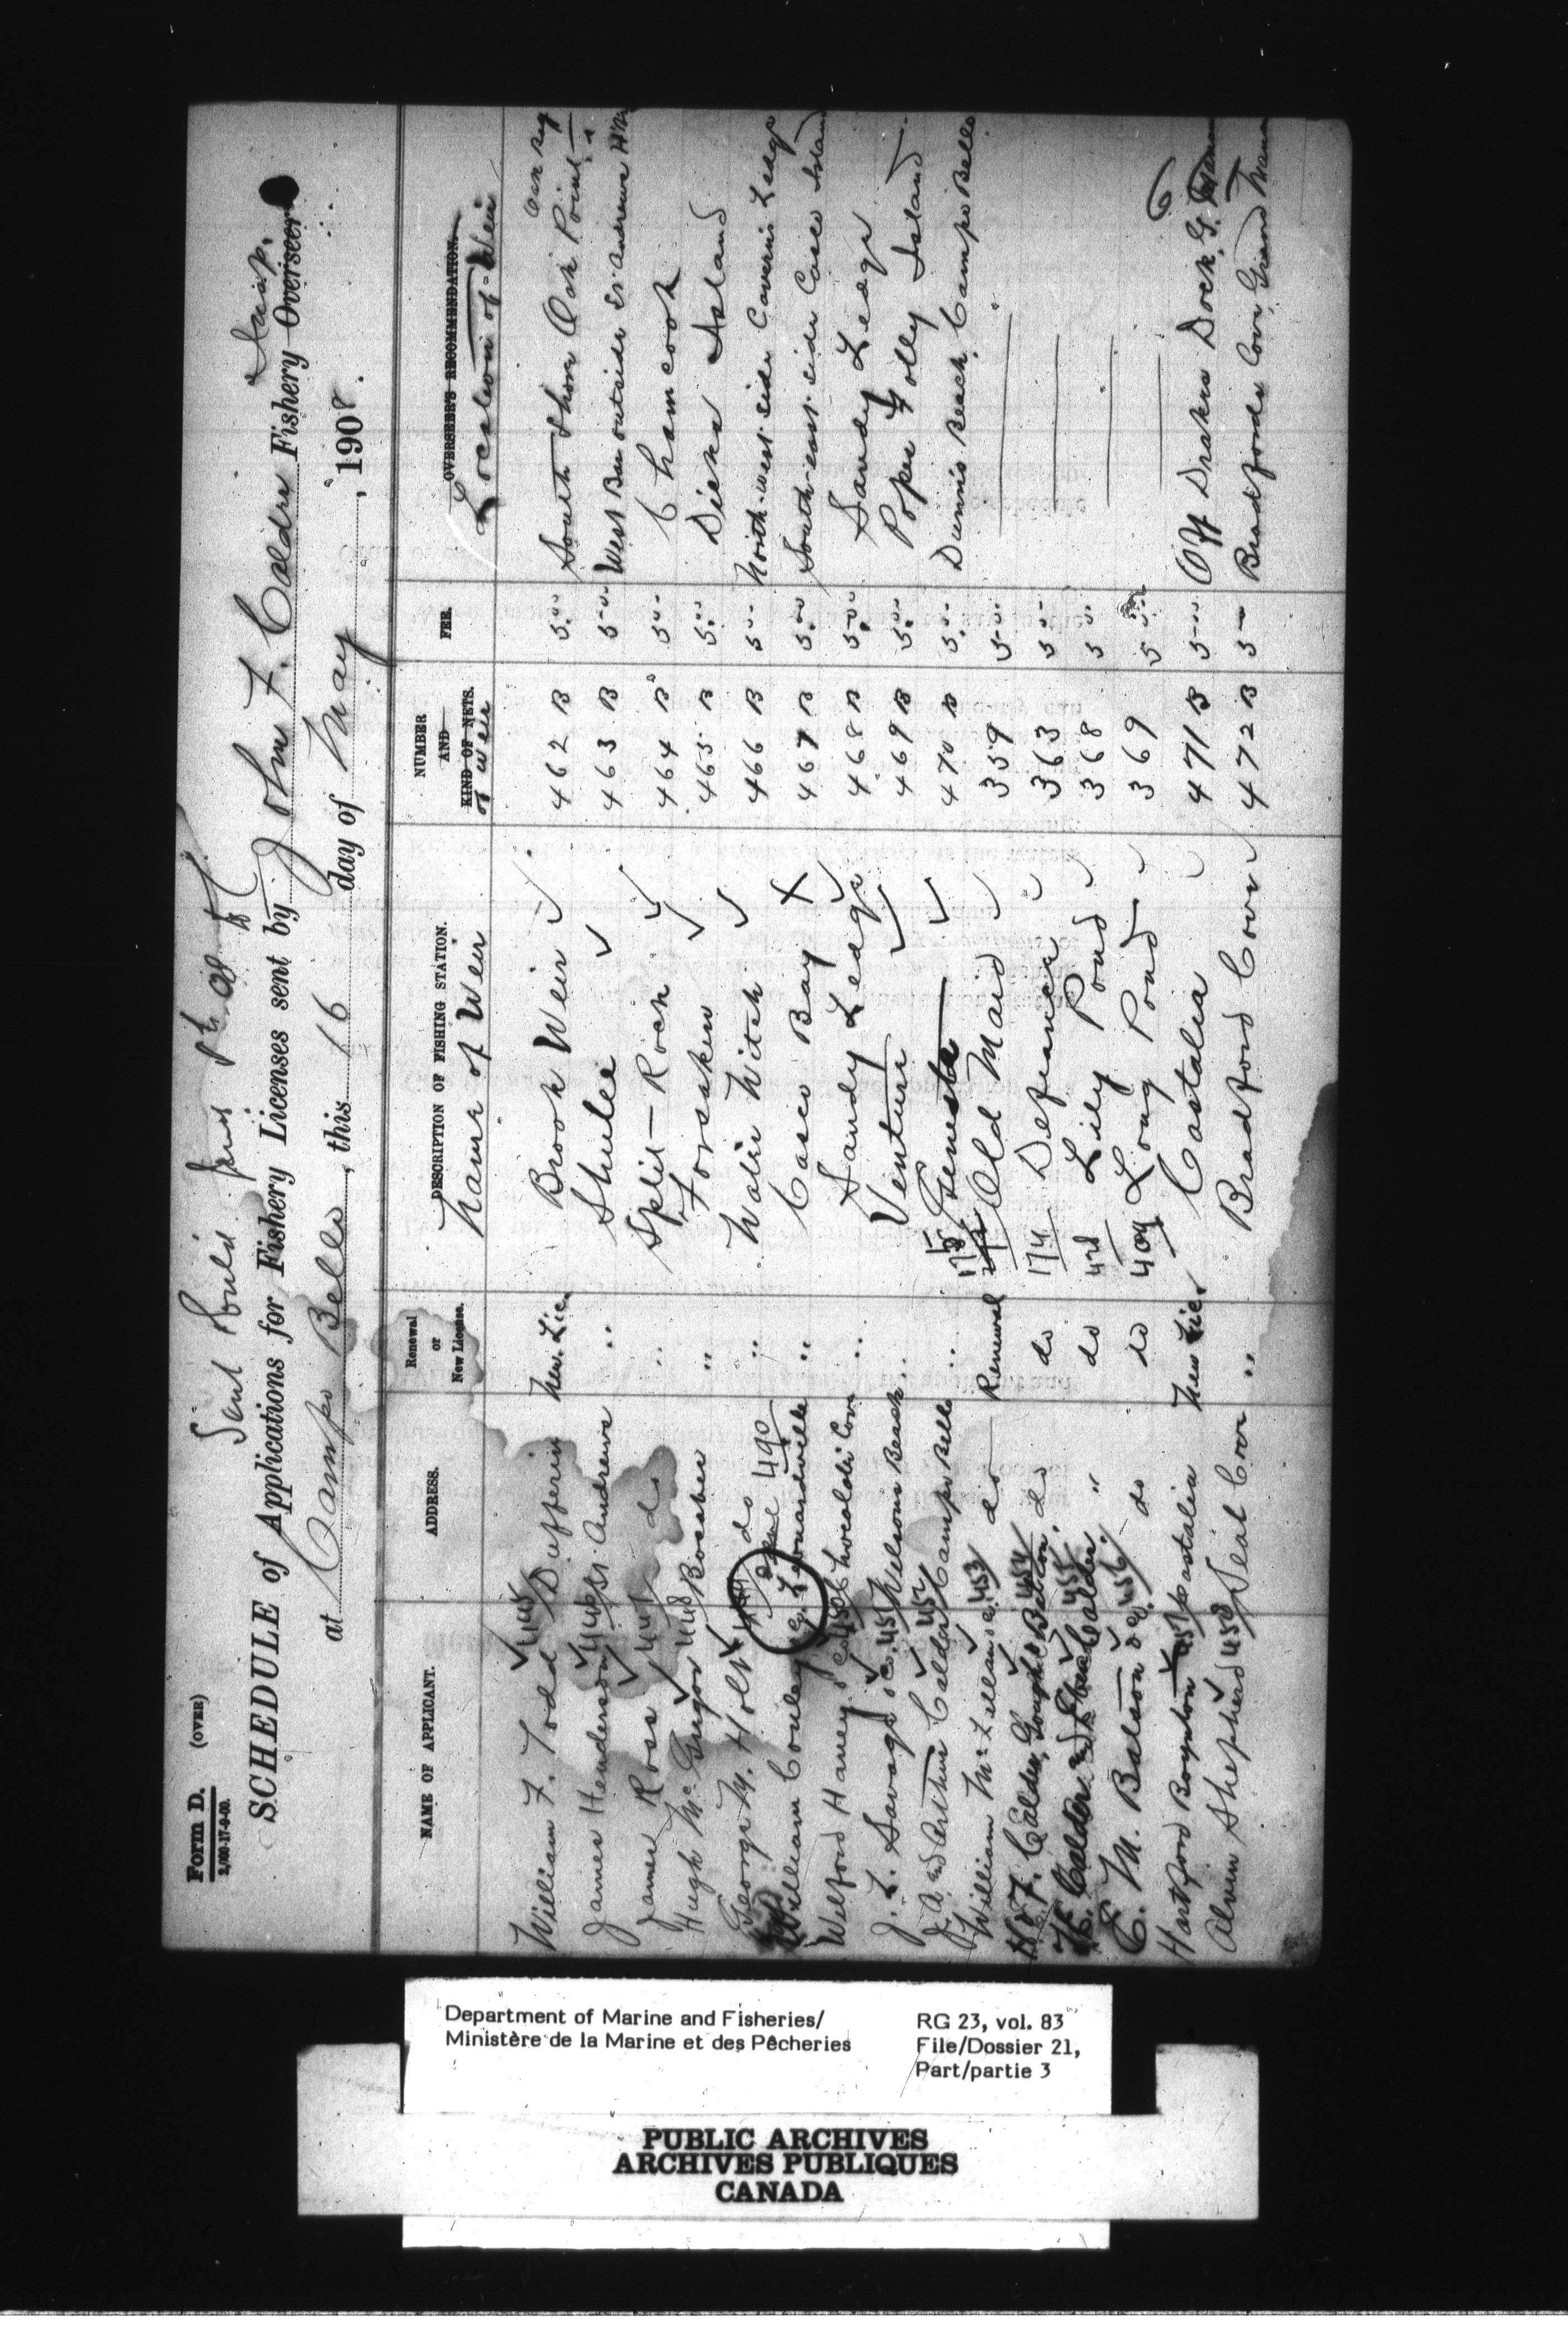 Form D. (OVER)
2,000-17-9-00.
SentOuld June 8th 08
SCHEDULE of Applications for Fishery Licenses sent by John F. Calder Fishery Overseer Insp.
at Campo Bello, this 16 day of May, 1908.
NAME OF APPLICANT. ADDRESS. Renewal or New License. DESCRIPTION OF FISHING STATION. NUMBER AND KIND OF NETS. FEE. OVERSEER'S RECOMMENDATION.
Name of Weir of Weir Location of Weir
William F. Todd 445 Dufferin New Lic. Brook Weir 462 B 5.00 South Shore Oak Point Oak Bay
James Henderson 446 St Andrews " Shulee 463 B 5.00 West Bar outside St. Andrews
James Ross 447 do " Split-Rock 464 B 5.00 Chamcook
Hugh McGregor 448 Bocabec " Forsaken 465 B 5.00 Dicks Island
George M. Holt 449 do " Water Witch 466 B 5.00 North-west side Caverns Ledge
490
William Conley Leonardville " Casco Bay 467 B 5.00 South-east side Casco Island
Welford Haney & Co 450 Chocolate Cove " Sandy Ledge 468 B 5.00 Sandy Ledge
J. L. Savage & Co. 451 Wilsons Beach " Venture 469 B 5.00 Popes Folly Island
J. A. and Arthur Calder 452 Campo Bello " Genesta 470 B 5.00 Dunns Beach, Campo Bello
William McLellan 453 do Renewal Old Maid 359 5.00
Calder, Gough & Batson 454 do do 174 Defiance 363 5.00
Calder and Calder 455 " do Lily Pond 368 5.00
E. M. Batson & Co. 456 do do 409 Long Pond 369 5.00 6
Hartford Boynton 457 Castalia New Lic. Castalia 471 B 5.00 Off Drakes Dock, G. Manan
Alvin Shepherd 458 Seal Cove " Bradford Cove 472 B 5.00 Bradfords Cove Grand Manan
Department of Marine and Fisheries/
Ministère de la Marine et des Pêcheries
RG 23, vol. 83
File/Dossier 21,
Part/partie 3
PUBLIC ARCHIVES
ARCHIVES PUBLIQUES
CANADA